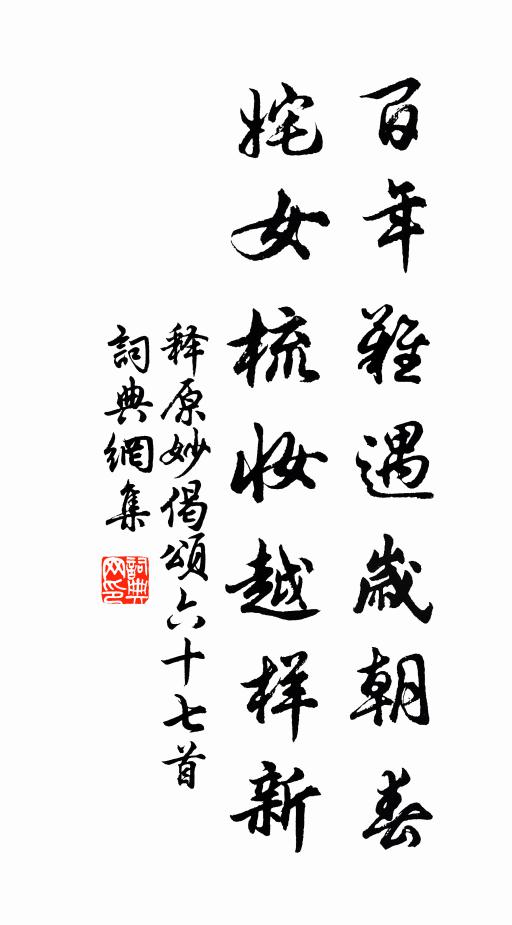 百年難遇歲朝春
姹女梳妝越样新
释原妙偈頌六十七首
詞典網集
詞典
网印